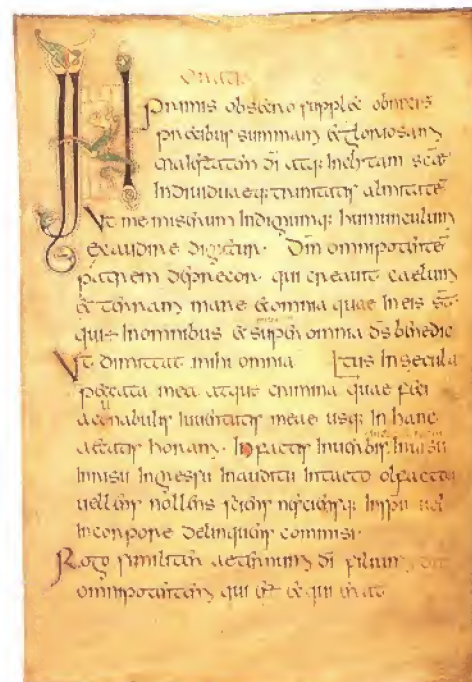 Oratio
IN primis obsecro supplex obnixis
precibus summam & gloriosam
maiestatem dī atq; inclytam scæ
Individuaeq; trinitatis almitatē
Vt me miserum Indignumq; humunculum
exaudire dignetur. Dm̄ omnipotentē
patrem deprecor. qui creauit caelum
& terram mare & omnia quae In eis st̄
quis In omnibus & super omnia ds̄ benedic
Vt dimittat mihi omnia tus In secula
peccata mea atque crimina quae feci
a cunabulis Iuuentutis meae usq; In hanc
aetatis horam. In factis In uerbis,
In risu In gressu In auditu In tacto olfactu
uellens nollens sciens nesciensq; In spū uel
In corpore delinquens commisi.
Rogo similiter aeternum dī filium
omnipotentem qui & qui erat